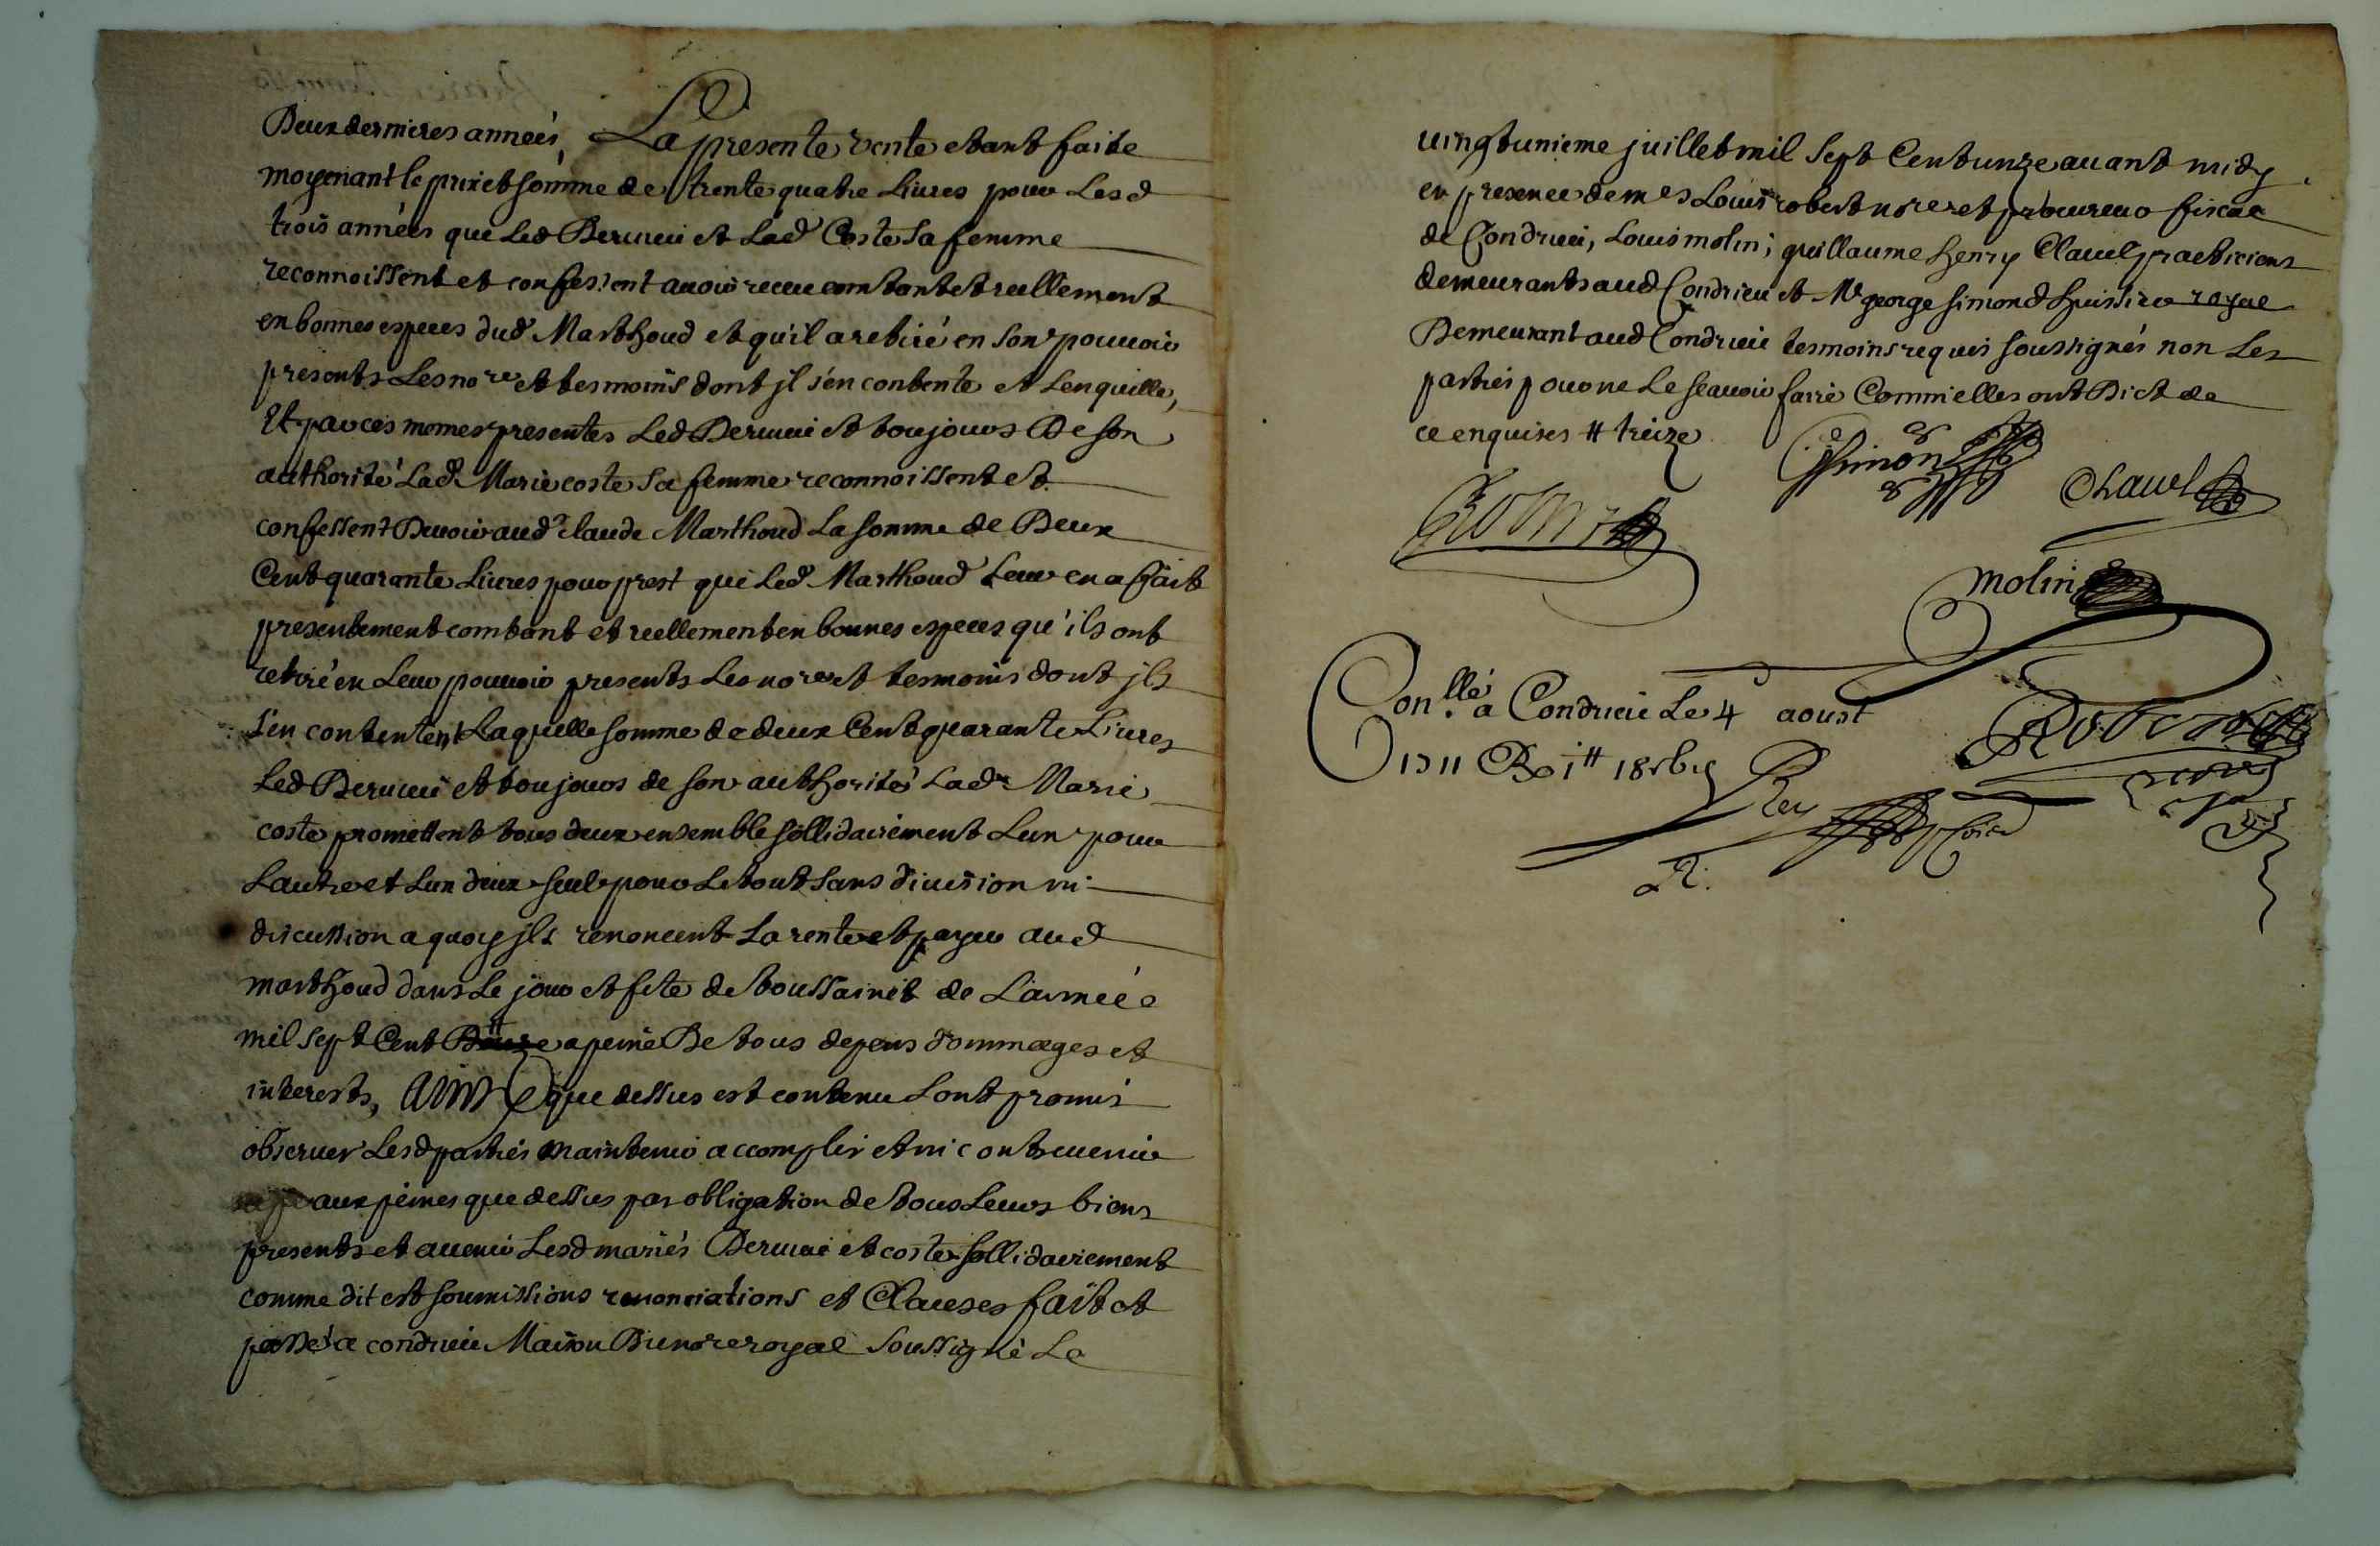 Deux dernieres années, La presente vente etant faite
moyenant le prix et somme de trente quatre Livres pour Lesd
trois années que Led Beruieu et Lad Coste sa femme
reconnoissent et confessent auoir receu comtant et reellement
en bonnes especes dud Marthoud et qu'il a retiré en son pouuoir
presents Les nore et tesmoins dont jl s'en contente et Len quitte,
Et par ces memes presentes Led Beruieu et toujours De son
authorité Lad Marie coste sa femme reconnoissent et
confessent Deuoir aud claude Marthoud La somme de Deux
Cent quarante Liures pour prest que Led Marthoud Leur en a fait
presentement comtant et reellement en bonnes especes qu'ils ont
retiré en Leur pouuoir presents Les nore et tesmoins dont jls
s'en contentent Laquelle somme de deux Cent quarante Liures
Led Beruieu et toujours de son authorité Lad Marie
coste promettent tous deux ensemble sollidairement Lun pour
Lautre et Lun deux seul pour Le tout sans diuision ni
discussion a quoy jls renoncent La rente et payer aud
marthoud dans Le jour et fete de toussainct de L'année
mil sept Cent a peine De tous depens dommages et
interests, Ainsy que dessus est contenu Lont promis
obseruer Lesd parties maintenir accomplir et ni contreuenir
aux peines que dessus par obligation de tous Leurs biens
presents et auenir Lesd mariés Beruieu et coste sollidairement
comme dit est soumissions renonciations et Clauses fait et
passé a condrieu Maison Du nore royal soussigné Le
uingtunieme juillet mil sept Cent unze auant midy
en presence de mes Louis robert nore et procureur fiscal
de Condrieu, Louis molin, guillaume henry Clauel practiciens
demeurants aud Condrieu et Me george simond huissier royal
Demeurant aud Condrieu tesmoins requis soussignés non Les
parties pour ne Le scauoir faire Comme elles ont Dict de
ce enquises # treize
Gsimon
Chauel
molin
Conllé a Condrieu Le 4 aoust
1711
Robert
Rey